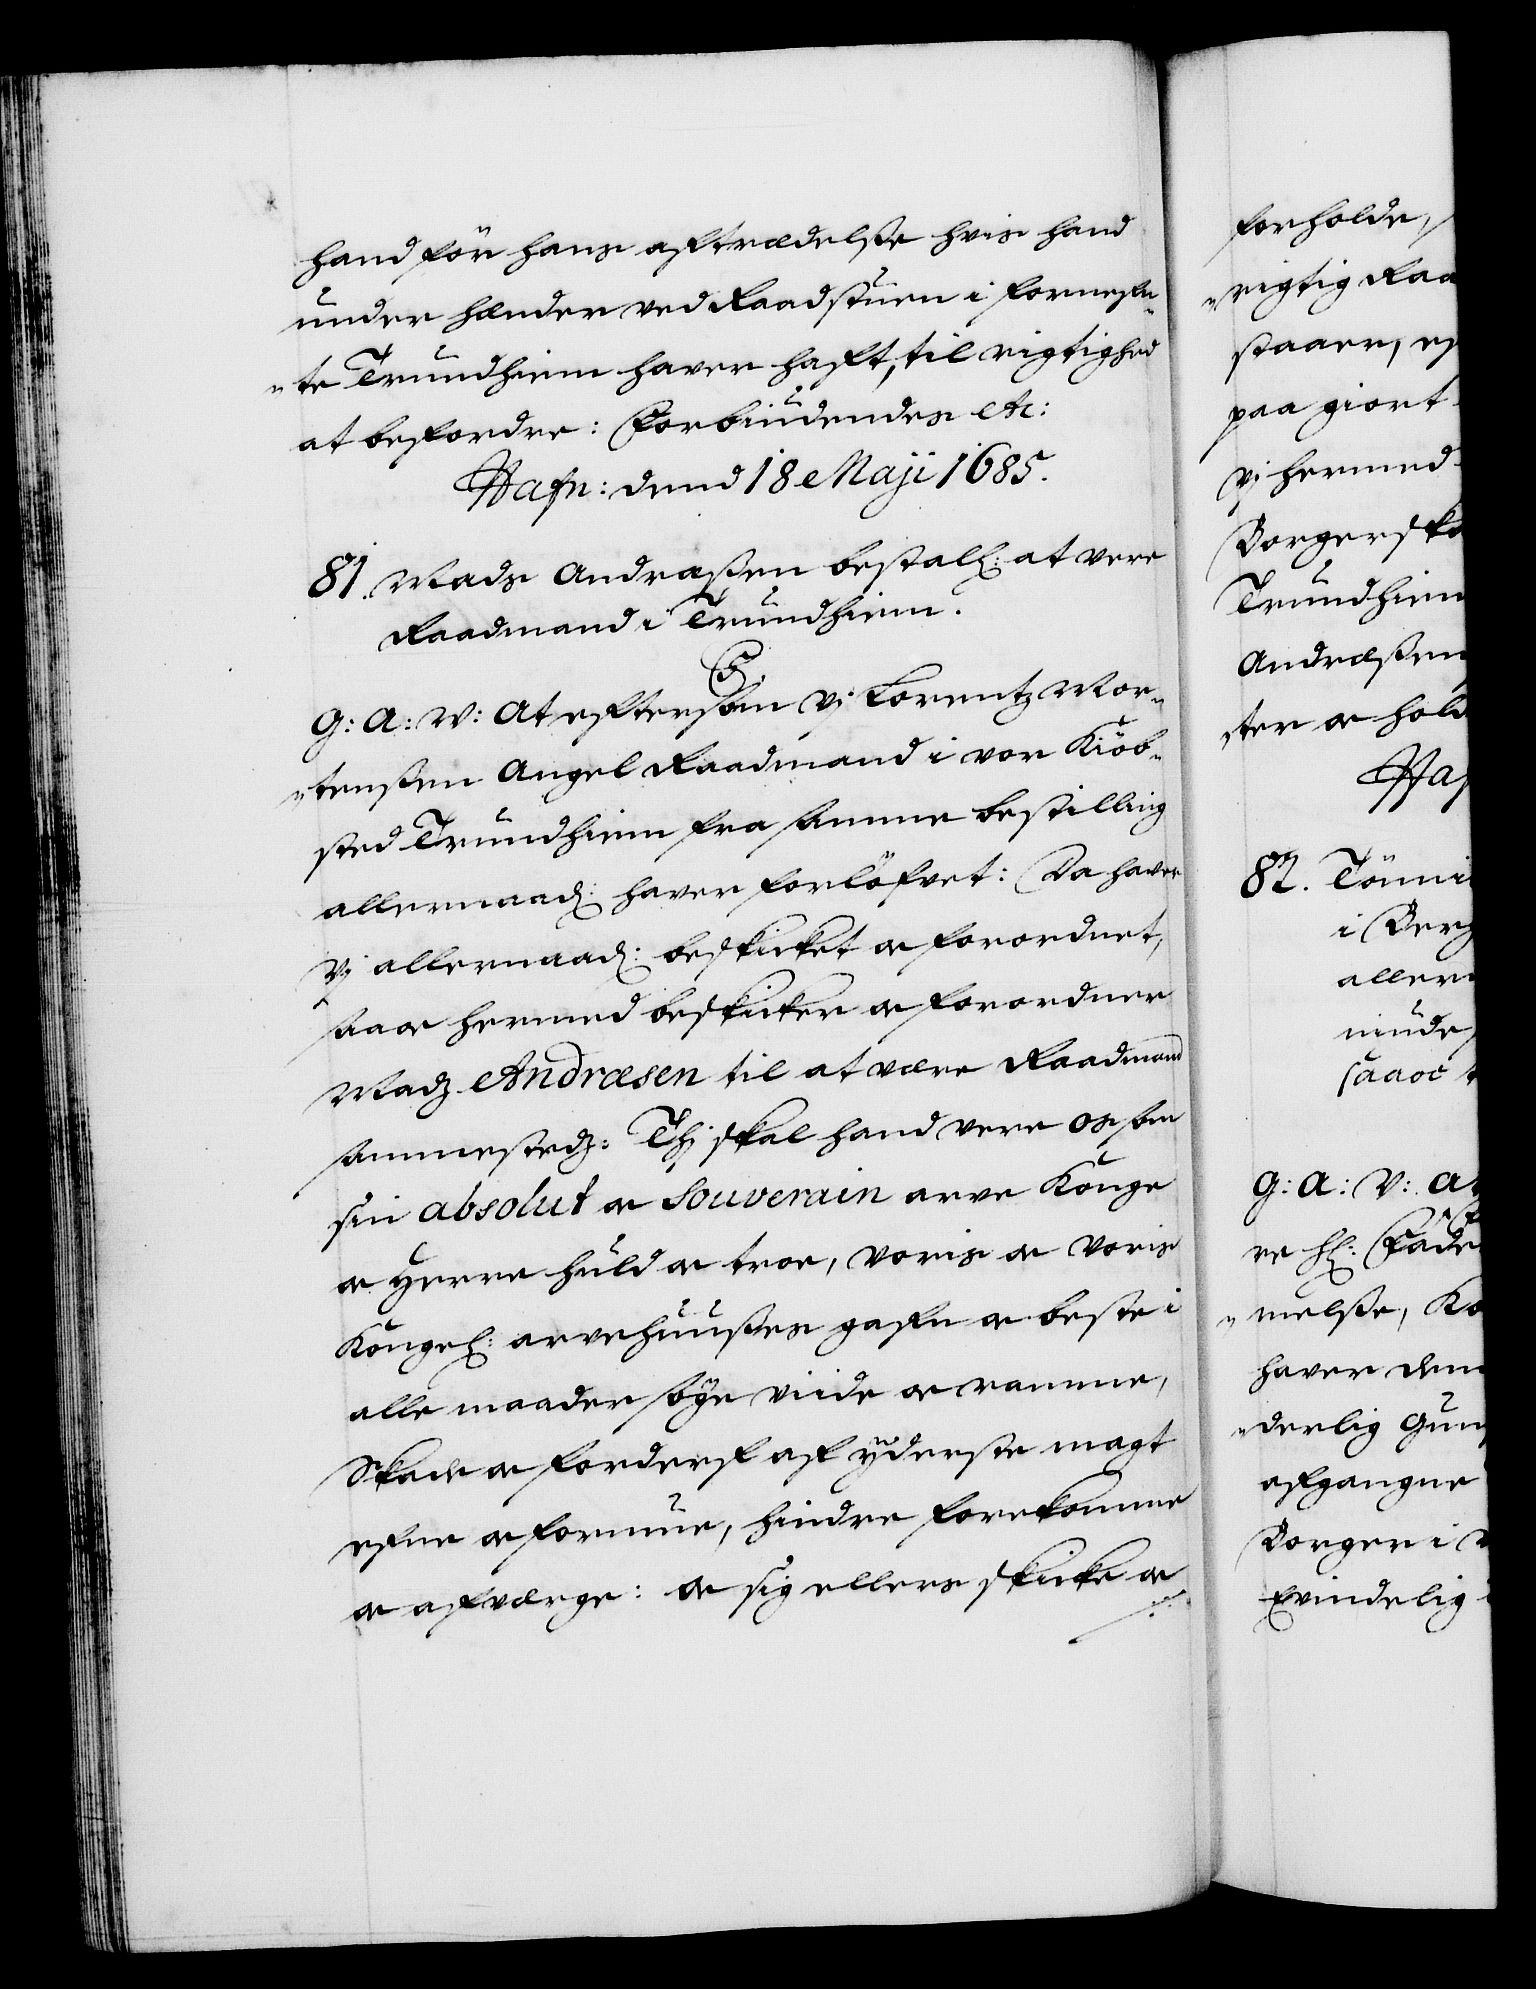 hand för hans aftrædelsse hvis hand
under hænder ved Raadstuen i fornefn¬
¬te Trundhiem haver hafft, til rigtighed
at befordre: Forbiudendes etc:
Hafn: dend 18 Maji 1685.
81. Mads Andræssen bestall: at vere
Raadmand i Trundhiem.
C5.
G: A: V: At eftersom Vj Lorentz Mor¬
¬tenssen Angel Raadmand i vor Kiöb¬
sted Trundhiem fra samme bestilling
allernaad: haver forlöfvet: Da haver
Vj allernaad: beskicket oc forordnet,
saa oc hermed beskicker oc forordner
Madz Andræsen til at være Raadmand
sammestedz: Thj skal hand vere os som
sin absolut oc Souverain arve Konge
oc Herre huld oc troe, voris oc voris
Kongel: arvehuusses gafn oc beste i
alle maader söge viide oc ramme,
Skade oc forderf af yderste magt
efne oc formue, hindre forekomme
oc afværge: oc sig ellers skicke oc
forholde,
¬rigtig Raa
staaer, ef
paa giort
Vj hermed
Borgerska
Trundhiem
Andræssen
ster oc hold
Haf
82. Tönni
i Berg
allern
niude,
saa oc
G: A: V: At
re hl: Fäde
¬melsse, Ko
haver dem
¬derlig Gun
afgangne
Borger i
Evindelig